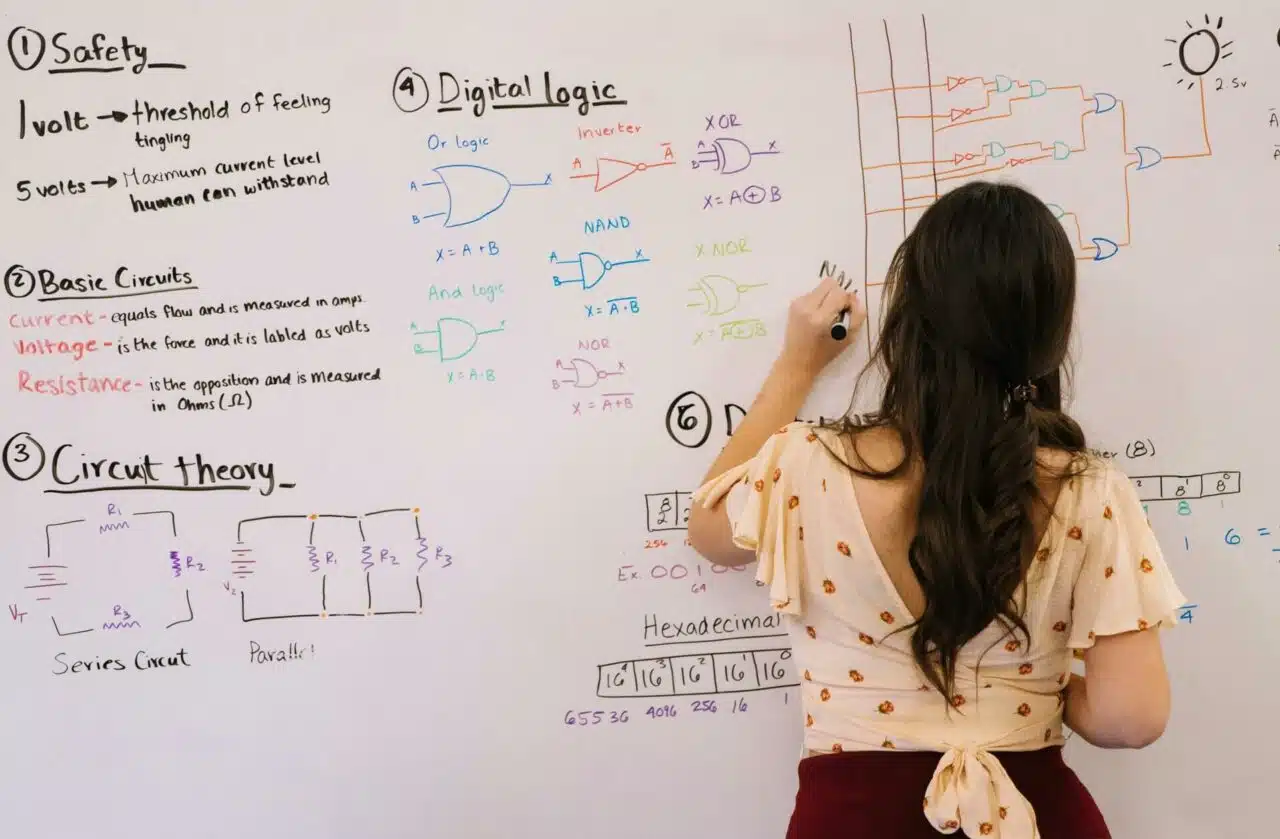 ① Safety
1 volt → threshold of feeling
tingling
5 volts → Maximum current level
human can withstand
② Basic Circuits
Current - equals flow and is measured in amps.
Voltage - is the force and it is labled as volts
Resistance - is the opposition and is measured
in Ohms (Ω)
③ Circuit theory
R1
R2
R3
VT
Series Circut
R1
R2
R3
Parallel
④ Digital logic
Or logic
A
B
X
X = A + B
And logic
A
B
X
X = A · B
Inverter
A
A̅
NAND
A
B
X
X = A̅ ̅·̅ ̅B̅
NOR
A
B
X
X = A̅+̅B̅
XOR
A
B
X
X = A ⊕ B
X NOR
X = A̅⊕̅B̅
2.5v
(8)
8¹
8⁰
8
1
1
6 =
4
256
Ex. 001
64
Hexadecimal
16⁴ 16³ 16² 16¹ 16⁰
65536 4096 256 16 1